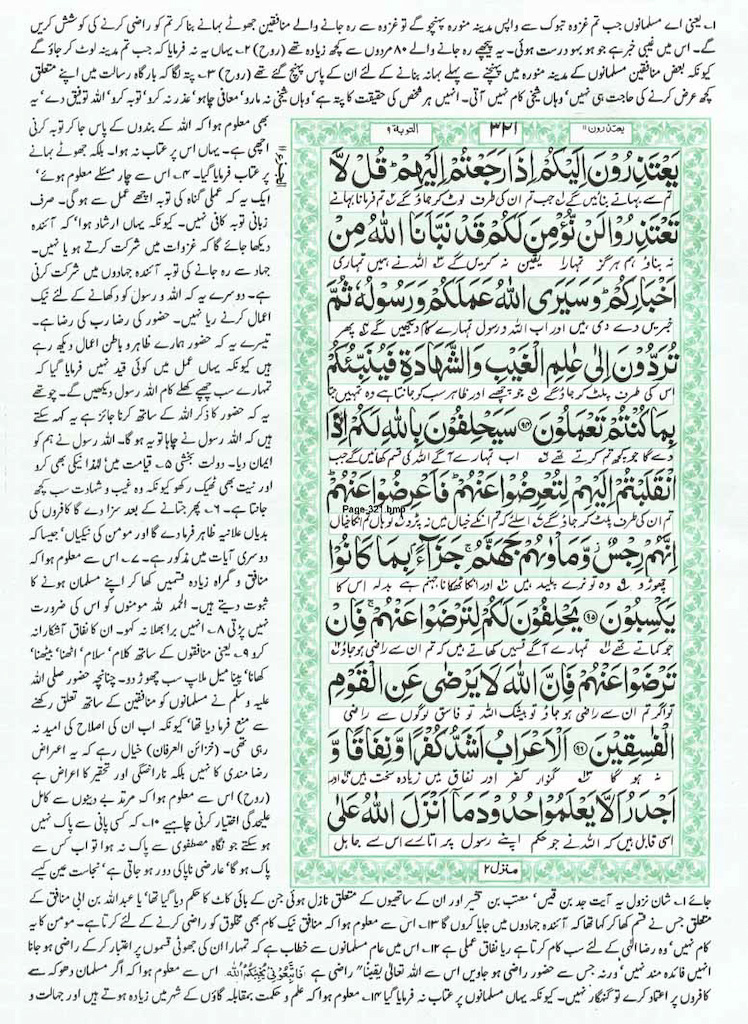 ۱۔ یعنی اے مسلمانوں جب تم غزوہ تبوک سے واپس مدینہ منورہ پہنچو گے تو غزوہ سے رہ جانے والے منافقین جھوٹے بہانے بنا کر تم کو راضی کرنے کی کوشش کریں
گے۔ اس میں غیبی خبر ہے جو ہو بہو درست ہوئی۔ یہ پیچھے رہ جانے والے ۸۰ مردوں سے کچھ زیادہ تھے (روح) ۲۔ یہاں یہ نہ فرمایا کہ جب تم مدینہ لوٹ کر جاؤ گے
کیونکہ بعض منافقین مسلمانوں کے مدینہ منورہ میں پہنچنے سے پہلے بہانہ بنانے کے لئے ان کے پاس پہنچ گئے تھے (روح) ۳۔ پتہ لگا کہ بارگاہ رسالت میں اپنے متعلق
کچھ عرض کرنے کی حاجت ہی نہیں' وہاں شیخی کام نہیں آتی۔ انہیں ہر شخص کی حقیقت کا پتہ ہے' وہاں شیخی نہ مارو' معافی چاہو' عذر نہ کرو' توبہ کرو' اللہ توفیق دے' یہ
یعتذرون ۱۱
۳۲۱
التوبة ۹
يَعْتَذِرُوْنَ اِلَيْكُمْ اِذَا رَجَعْتُمْ اِلَيْهِمْ ؕ قُلْ لَّا
تم سے بہانے بنائیں گے جب تم ان کی طرف لوٹ کر جاؤ گے تم فرمانا بہانے
تَعْتَذِرُوْا لَنْ نُّؤْمِنَ لَكُمْ قَدْ نَبَّاَنَا اللّٰهُ مِنْ
نہ بناؤ ہم ہرگز تمہارا یقین نہ کریں گے اللہ نے ہمیں تمہاری
اَخْبَارِكُمْ ؕ وَسَيَرَى اللّٰهُ عَمَلَكُمْ وَرَسُوْلُهٗ ثُمَّ
خبریں دے دی ہیں اور اب اللہ و رسول تمہارے کام دیکھیں گے پھر
تُرَدُّوْنَ اِلٰى عٰلِمِ الْغَيْبِ وَالشَّهَادَةِ فَيُنَبِّئُكُمْ
اس کی طرف پلٹ کر جاؤ گے جو چھپے اور ظاہر سب کو جانتا ہے وہ تمہیں جتا
بِمَا كُنْتُمْ تَعْمَلُوْنَ ۹۴ سَيَحْلِفُوْنَ بِاللّٰهِ لَكُمْ اِذَا
دے گا جو کچھ تم کرتے تھے اب تمہارے آگے اللہ کی قسم کھائیں گے جب
انْقَلَبْتُمْ اِلَيْهِمْ لِتُعْرِضُوْا عَنْهُمْ ؕ فَاَعْرِضُوْا عَنْهُمْ ؕ
Page-321.bmp
تم ان کی طرف پلٹ کر جاؤ گے اس لئے کہ تم انکے خیال میں نہ پڑو تو ہاں تم انکا خیال
اِنَّهُمْ رِجْسٌ ؗ وَّمَاْوٰىهُمْ جَهَنَّمُ ۚ جَزَآءًۢ بِمَا كَانُوْا
چھوڑو وہ تو نرے پلید ہیں اور انکا ٹھکانا جہنم ہے بدلہ اس کا
يَكْسِبُوْنَ ۹۵ يَحْلِفُوْنَ لَكُمْ لِتَرْضَوْا عَنْهُمْ ۚ فَاِنْ
جو کماتے تھے تمہارے آگے قسمیں کھاتے ہیں کہ تم ان سے راضی ہو جاؤ
تَرْضَوْا عَنْهُمْ فَاِنَّ اللّٰهَ لَا يَرْضٰى عَنِ الْقَوْمِ
تو اگر تم ان سے راضی ہو جاؤ تو بیشک اللہ تو فاسق لوگوں سے راضی
الْفٰسِقِيْنَ ۹۶ اَلْاَعْرَابُ اَشَدُّ كُفْرًا وَّنِفَاقًا وَّ
نہ ہو گا گنوار کفر اور نفاق میں زیادہ سخت ہیں اور
اَجْدَرُ اَلَّا يَعْلَمُوْا حُدُوْدَ مَآ اَنْزَلَ اللّٰهُ عَلٰى
اسی قابل ہیں کہ اللہ نے جو حکم اپنے رسول پر اتارے اس سے جاہل
منزل ۲
بھی معلوم ہوا کہ اللہ کے بندوں کے پاس جا کر توبہ کرنی
اچھی ہے۔ یہاں اس پر عتاب نہ ہوا۔ بلکہ جھوٹے بہانے
پر عتاب فرمایا گیا۔ ۴۔ اس سے چار مسئلے معلوم ہوئے'
ایک یہ کہ عملی گناہ کی توبہ اچھے عمل سے ہو گی۔ صرف
زبانی توبہ کافی نہیں۔ کیونکہ یہاں ارشاد ہوا' کہ آئندہ
دیکھا جائے گا کہ غزوات میں شرکت کرتے ہو یا نہیں۔
جہاد سے رہ جانے کی توبہ آئندہ جہادوں میں شرکت کرنی
ہے۔ دوسرے یہ کہ اللہ و رسول کو دکھانے کے لئے نیک
اعمال کرنے ریا نہیں۔ حضور کی رضا رب کی رضا ہے۔
تیسرے یہ کہ حضور ہمارے ظاہر و باطن اعمال دیکھ رہے
ہیں کیونکہ یہاں عمل میں کوئی قید نہیں فرمایا گیا کہ
تمہارے سب چھپے کھلے کام اللہ رسول دیکھیں گے۔ چوتھے
یہ کہ حضور کا ذکر اللہ کے ساتھ کرنا جائز ہے یہ کہہ سکتے
ہیں کہ اللہ رسول نے چاہا تو یہ ہو گا۔ اللہ رسول نے ہم کو
ایمان دیا۔ دولت بخشی ۵۔ قیامت میں' لہٰذا نیکی بھی کرو
اور نیت بھی ٹھیک رکھو کیونکہ وہ غیب و شہادت سب کچھ
جانتا ہے۔ ۶۔ پھر جتانے کے بعد سزا دے گا کافروں کی
بدیاں علانیہ ظاہر فرما دے گا اور مومن کی نیکیاں' جیسا کہ
دوسری آیات میں مذکور ہے۔ ۷۔ اس سے معلوم ہوا کہ
منافق و گمراہ زیادہ قسمیں کھا کر اپنے مسلمان ہونے کا
ثبوت دیتے ہیں۔ الحمد للہ مومنوں کو اس کی ضرورت
نہیں پڑتی ۸۔ انہیں برا بھلا نہ کہو۔ ان کا نفاق آشکارا نہ
کرو ۹۔ یعنی منافقوں کے ساتھ کلام' سلام' اٹھنا' بیٹھنا'
کھانا' پینا میل ملاپ سب چھوڑ دو۔ چنانچہ حضور صلی اللہ
علیہ و سلم نے مسلمانوں کو منافقین کے ساتھ تعلق رکھنے
سے منع فرما دیا تھا' کیونکہ اب ان کی اصلاح کی امید نہ
رہی تھی۔ (خزائن العرفان) خیال رہے کہ یہ اعراض
رضا مندی کا نہیں بلکہ ناراضگی اور تحقیر کا اعراض ہے
(روح) اس سے معلوم ہوا کہ مرتد بے دینوں سے کامل
علیحدگی اختیار کرنی چاہیے ۱۰۔ کہ کسی پانی سے پاک نہیں
ہو سکتے جو نگاہ مصطفوی سے پاک نہ ہوا تو اب کس سے
پاک ہو گا' عارضی ناپاکی دور ہو جاتی ہے' نجاست عین کیسے
جائے ۱۱۔ شان نزول یہ آیت جد بن قیس' معتب بن قشیر اور ان کے ساتھیوں کے متعلق نازل ہوئی جن کے بائی کاٹ کا حکم دیا گیا تھا' یا عبداللہ بن ابی منافق کے
متعلق جس نے قسم کھا کر کہا تھا کہ آئندہ جہادوں میں جایا کروں گا ۱۳۔ اس سے معلوم ہوا کہ منافق نیک کام بھی مخلوق کو راضی کرنے کے لئے کرتا ہے۔ مومن کا یہ
کام نہیں' وہ رضا الٰہی کے لئے سب کام کرتا ہے ریا نفاق عملی ہے ۱۳۔ اس میں عام مسلمانوں سے خطاب ہے کہ تمہارا ان کی جھوٹی قسموں پر اعتبار کر کے راضی ہو جانا
انہیں فائدہ مند نہیں' ورنہ جس سے حضور راضی ہو جاویں اس سے اللہ تعالیٰ یقیناً" راضی ہے فَاتَّبِعُوْنِیْ یُحْبِبْکُمُ اللّٰہ اس سے معلوم ہوا کہ اگر مسلمان دھوکہ سے
کافروں پر اعتماد کرے تو گنہگار نہیں۔ کیونکہ یہاں مسلمانوں پر عتاب نہ فرمایا گیا ۱۴۔ معلوم ہوا کہ علم و حکمت بمقابلہ گاؤں کے شہر میں زیادہ ہوتے ہیں اور جہالت و